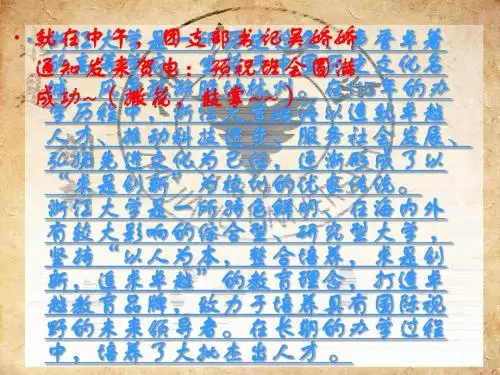 就在中午，团支部书记吴娇娇
通知发来贺电：预祝班会圆满
成功~（撒花，鼓掌~~）
学历程中，浙江大学始终以造就卓越
人才、推动科技进步、服务社会发展、
弘扬先进文化为己任，逐渐形成了以
“求是创新”为校训的优良传统。
浙江大学是一所特色鲜明、在海内外
有较大影响的综合型、研究型大学，
坚持“以人为本，整合培养，求是创
新，追求卓越”的教育理念，打造卓
越教育品牌，致力于培养具有国际视
野的未来领导者。在长期的办学过程
中，培养了大批杰出人才。